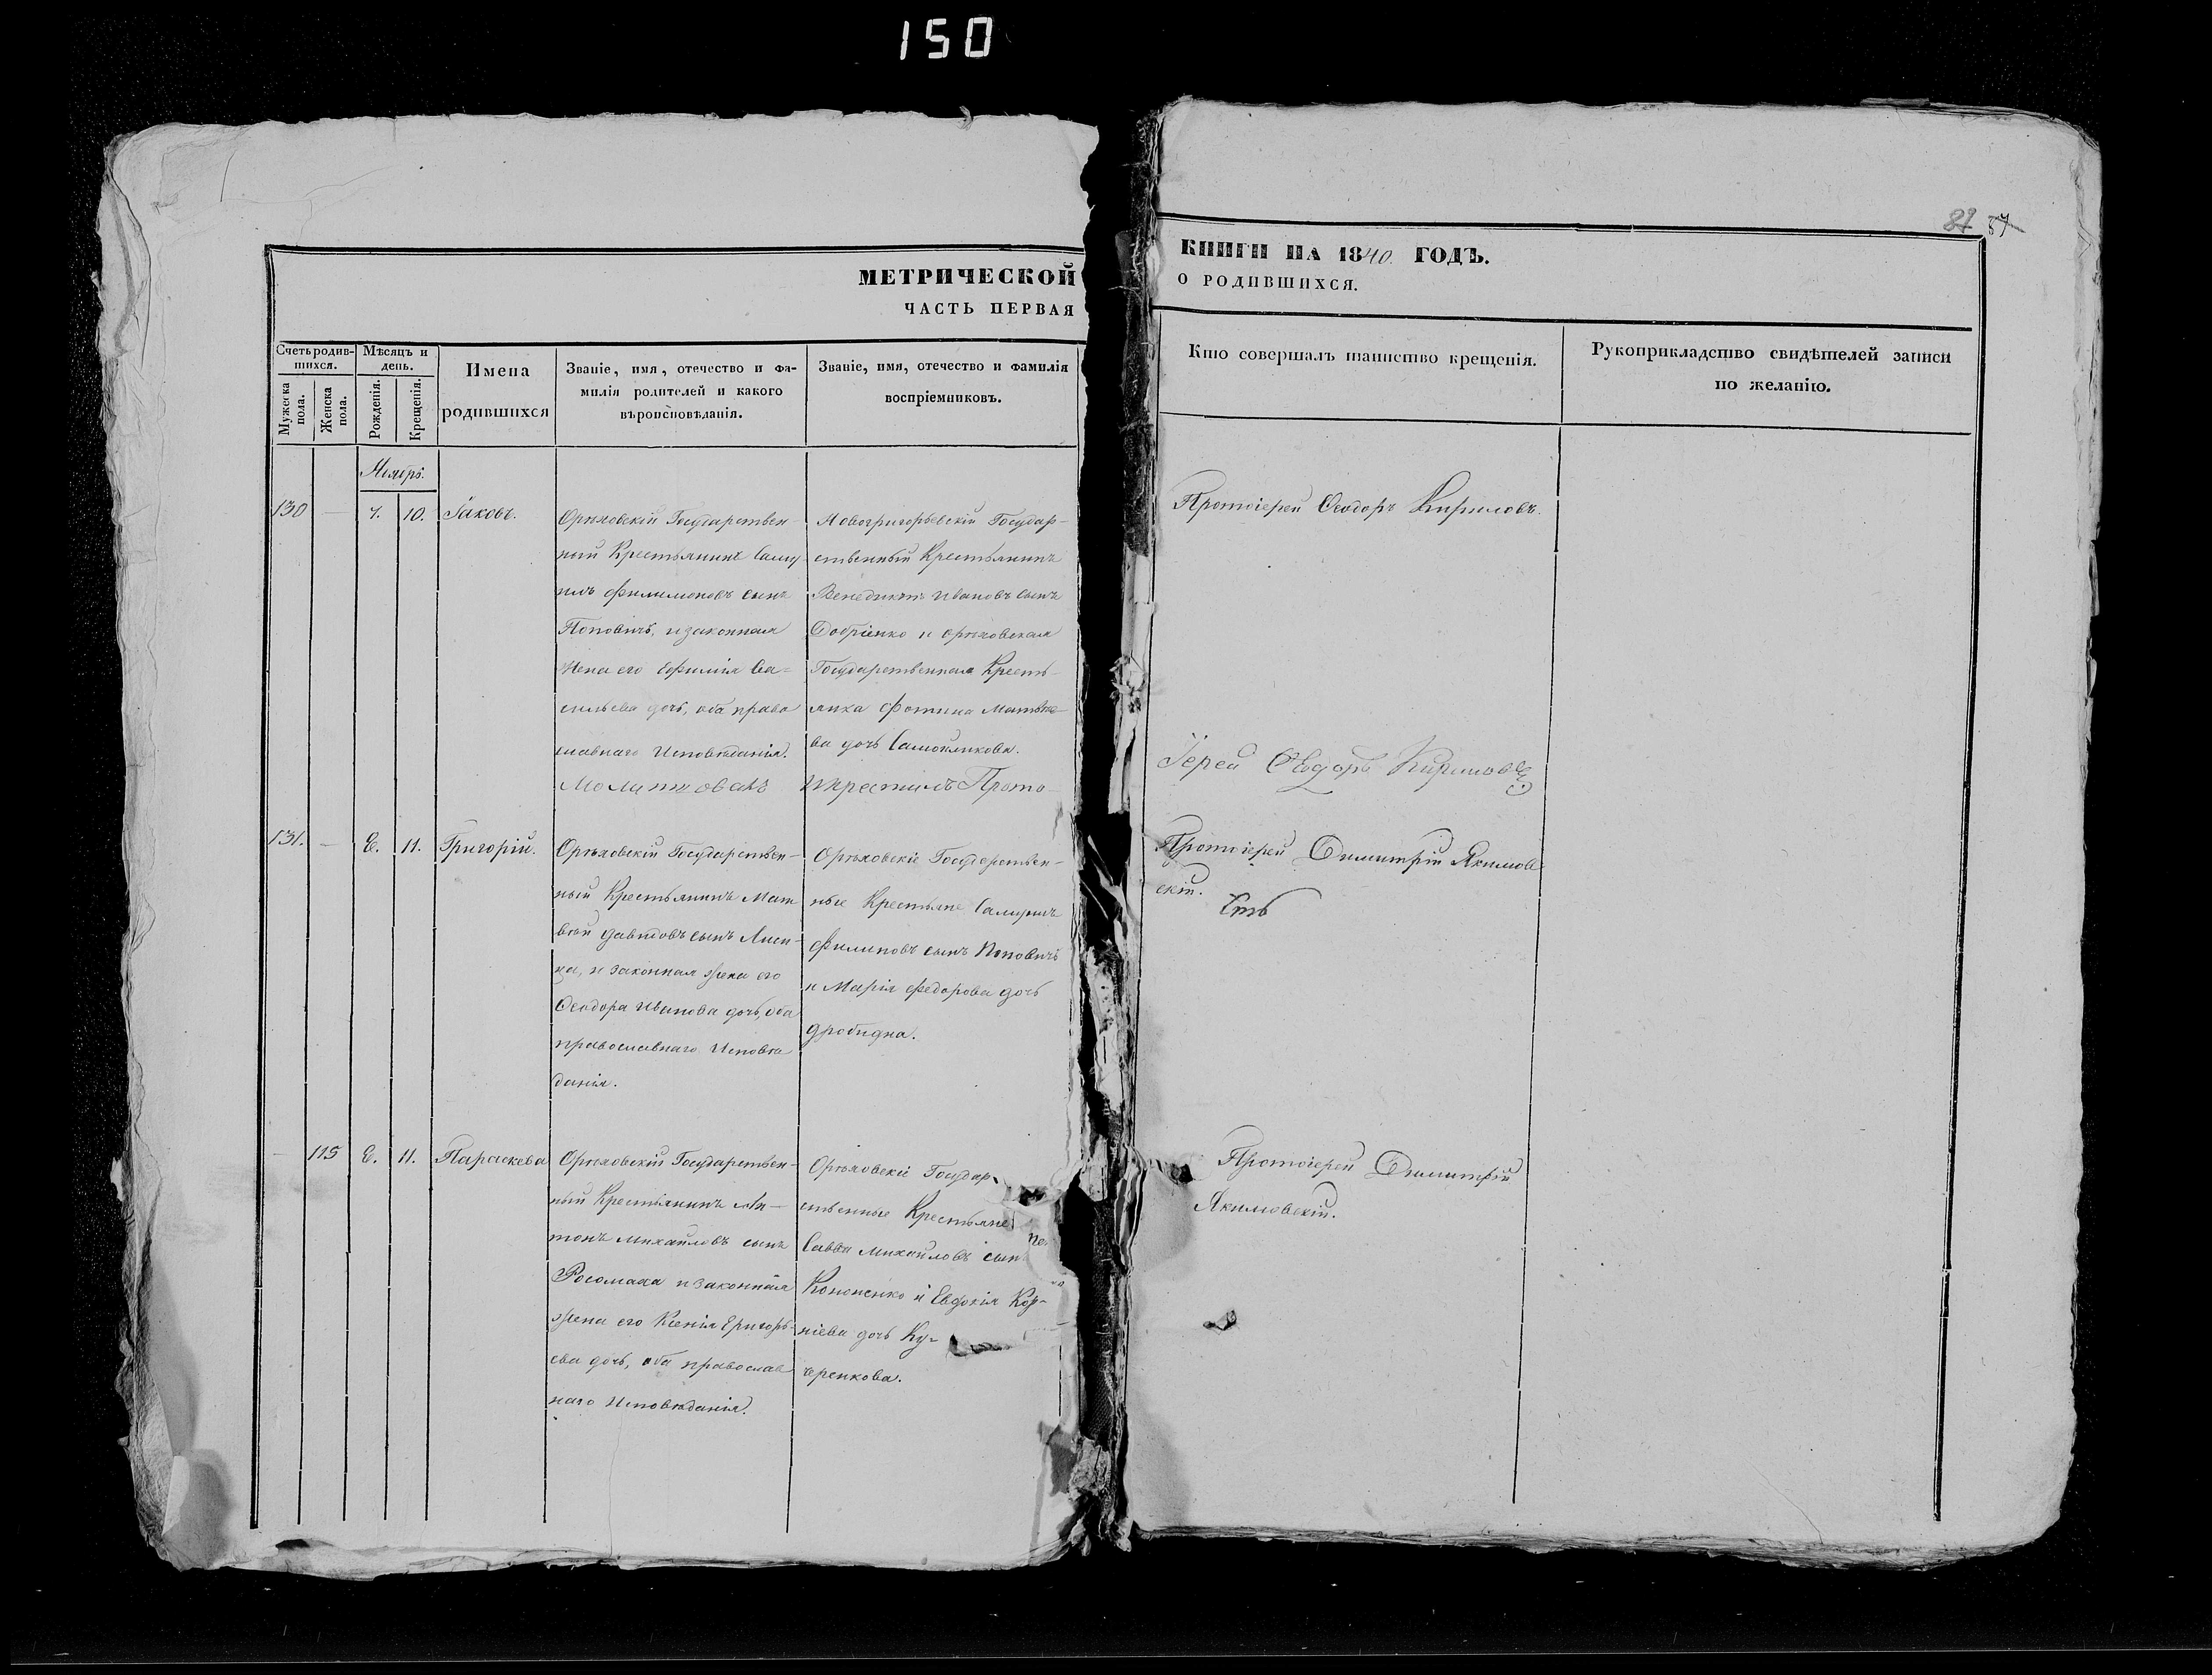 150
82 87
МЕТРИЧЕСКОЙ КНИГИ НА 1840. ГОДЪ.
ЧАСТЬ ПЕРВАЯ О РОДИВШИХСЯ.
Счетъ родив-
шихся.
Мужеска
пола.
Женска
пола.
Мѣсяцъ и
день.
Рожденія.
Крещенія.
Имена
родившихся
Званіе, имя, отечество и фа-
милія родителей и какого
вѣроисповѣданія.
Званіе, имя, отечество и фамилія
воспріемниковъ.
Кто совершалъ таинство крещенія.
Рукоприкладство свидѣтелей записи
по желанію.
Ноябрь.
130 — 7. 10. Іаковъ.
Орѣховскій Государствен-
ный Крестьянинъ Саму-
илъ Филимоновъ сынъ
Поповичъ, и законная
Жена его Ефимія Ва=
сильева дочь, оба право
славнаго Исповѣданія.
Новогригорьевскій Государ-
ственный Крестьянинъ
Венедиктъ Ивановъ сынъ
Добріенко и Орѣховская
Государственная Кресть-
янка Фотина Матвѣе-
ва дочь Самойликова.
Протоіерей Ѳеодоръ Кириловъ.
Молитвовалъ и крестилъ Прото-
Іерей Ѳеодоръ Кириловъ
131. — 8. 11. Григорій.
Орѣховскій Государствен-
ный Крестьянинъ Мат
вѣй Давидовъ сынъ Лиси-
ца, и законная жена его
Ѳеодора Иванова дочь, оба
православнаго Исповѣ
данія.
Орѣховскіе Государствен-
ные Крестьяне Самуилъ
Филиповъ сынъ Поповичъ
и Марія Федорова дочь
Дробидна.
Протоіерей Димитрій Якимов
скій.
— 115 8. 11. Параскева
Орѣховскій Государствен-
ный Крестьянинъ Ан-
тонъ Михайловъ сынъ
Росомаха и законная
жена его Ксенія Григорь-
ева дочь, оба православ
наго Исповѣданія.
Орѣховскіе Государ-
ственные Крестьяне
Савва Михайловъ сынъ
Кононенко и Евдокія Кор-
ніева дочь Ку-
черенкова.
Протоіерей Димитрій
Якимовскій.